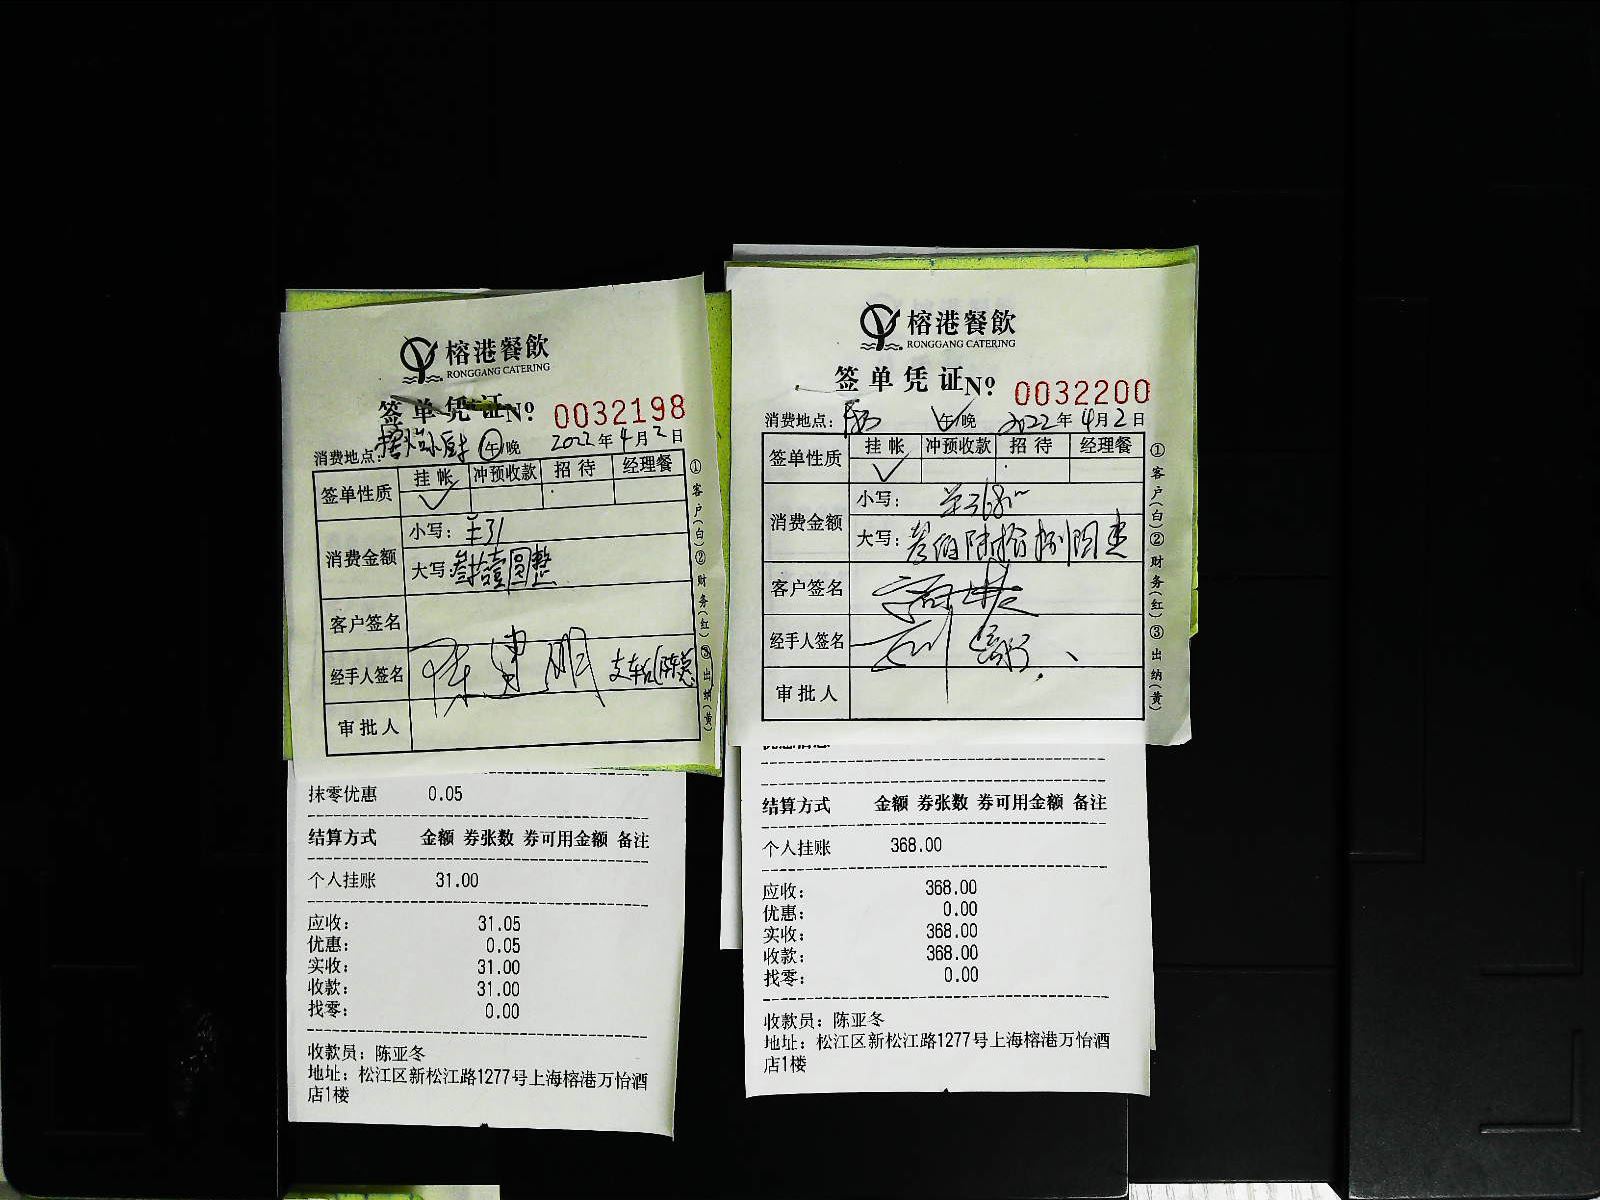 榕港餐飲
RONGGANG CATERING
签单凭证No 0032198
消费地点: 午/晚 2022年4月2日
签单性质 挂帐 冲预收款 招待 经理餐
消费金额 小写: 31
大写: 叁拾壹圆整
客户签名
经手人签名 陈建明
审批人
①客户(白)②财务(红)③出纳(黄)
抹零优惠 0.05
结算方式 金额 券张数 券可用金额 备注
个人挂账 31.00
应收: 31.05
优惠: 0.05
实收: 31.00
收款: 31.00
找零: 0.00
收款员: 陈亚冬
地址: 松江区新松江路1277号上海榕港万怡酒
店1楼
榕港餐飲
RONGGANG CATERING
签单凭证No 0032200
消费地点: 午/晚 2022年4月2日
签单性质 挂帐 冲预收款 招待 经理餐
消费金额 小写: 368
大写: 叁佰陆拾捌圆整
客户签名
经手人签名
审批人
①客户(白)②财务(红)③出纳(黄)
结算方式 金额 券张数 券可用金额 备注
个人挂账 368.00
应收: 368.00
优惠: 0.00
实收: 368.00
收款: 368.00
找零: 0.00
收款员: 陈亚冬
地址: 松江区新松江路1277号上海榕港万怡酒
店1楼